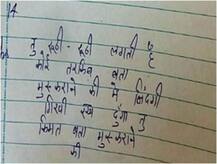 तु रूठी - रूठी लगती है
कोई तरकिब बता
मुस्कराने की मै जिंदगी
गिरवी रख दुंगा तु
किमत बता मुस्कराने
की